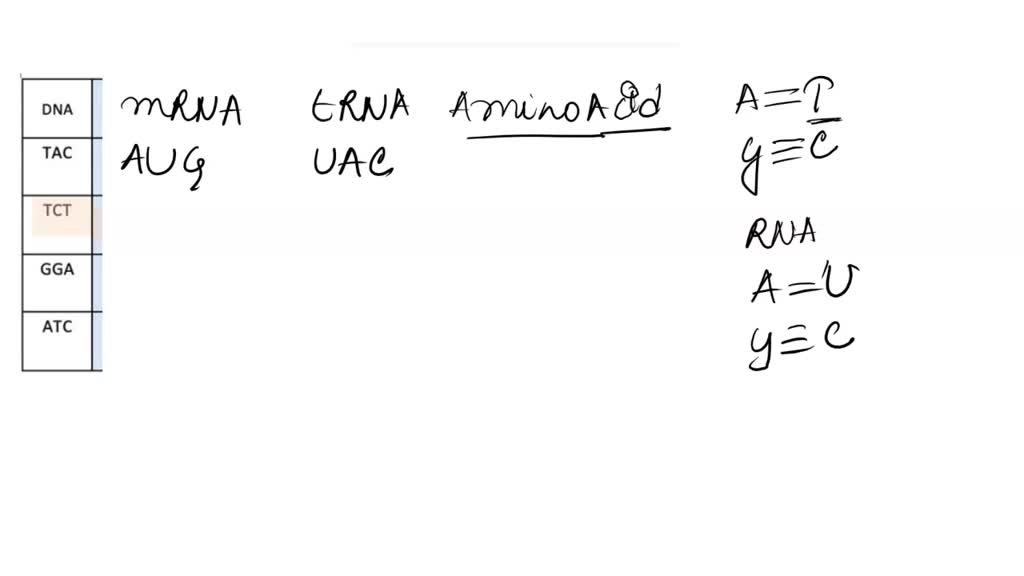 DNA mRNA tRNA Amino Acid
TAC AUG UAC
TCT
GGA
ATC
A=T
G≡C
RNA
A=U
G≡C